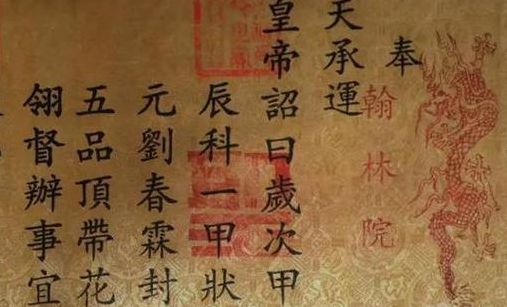 奉
翰林院
天承運
皇帝詔曰歲次甲
辰科一甲狀
元劉春霖封
五品頂帶花
翎督辦事宜